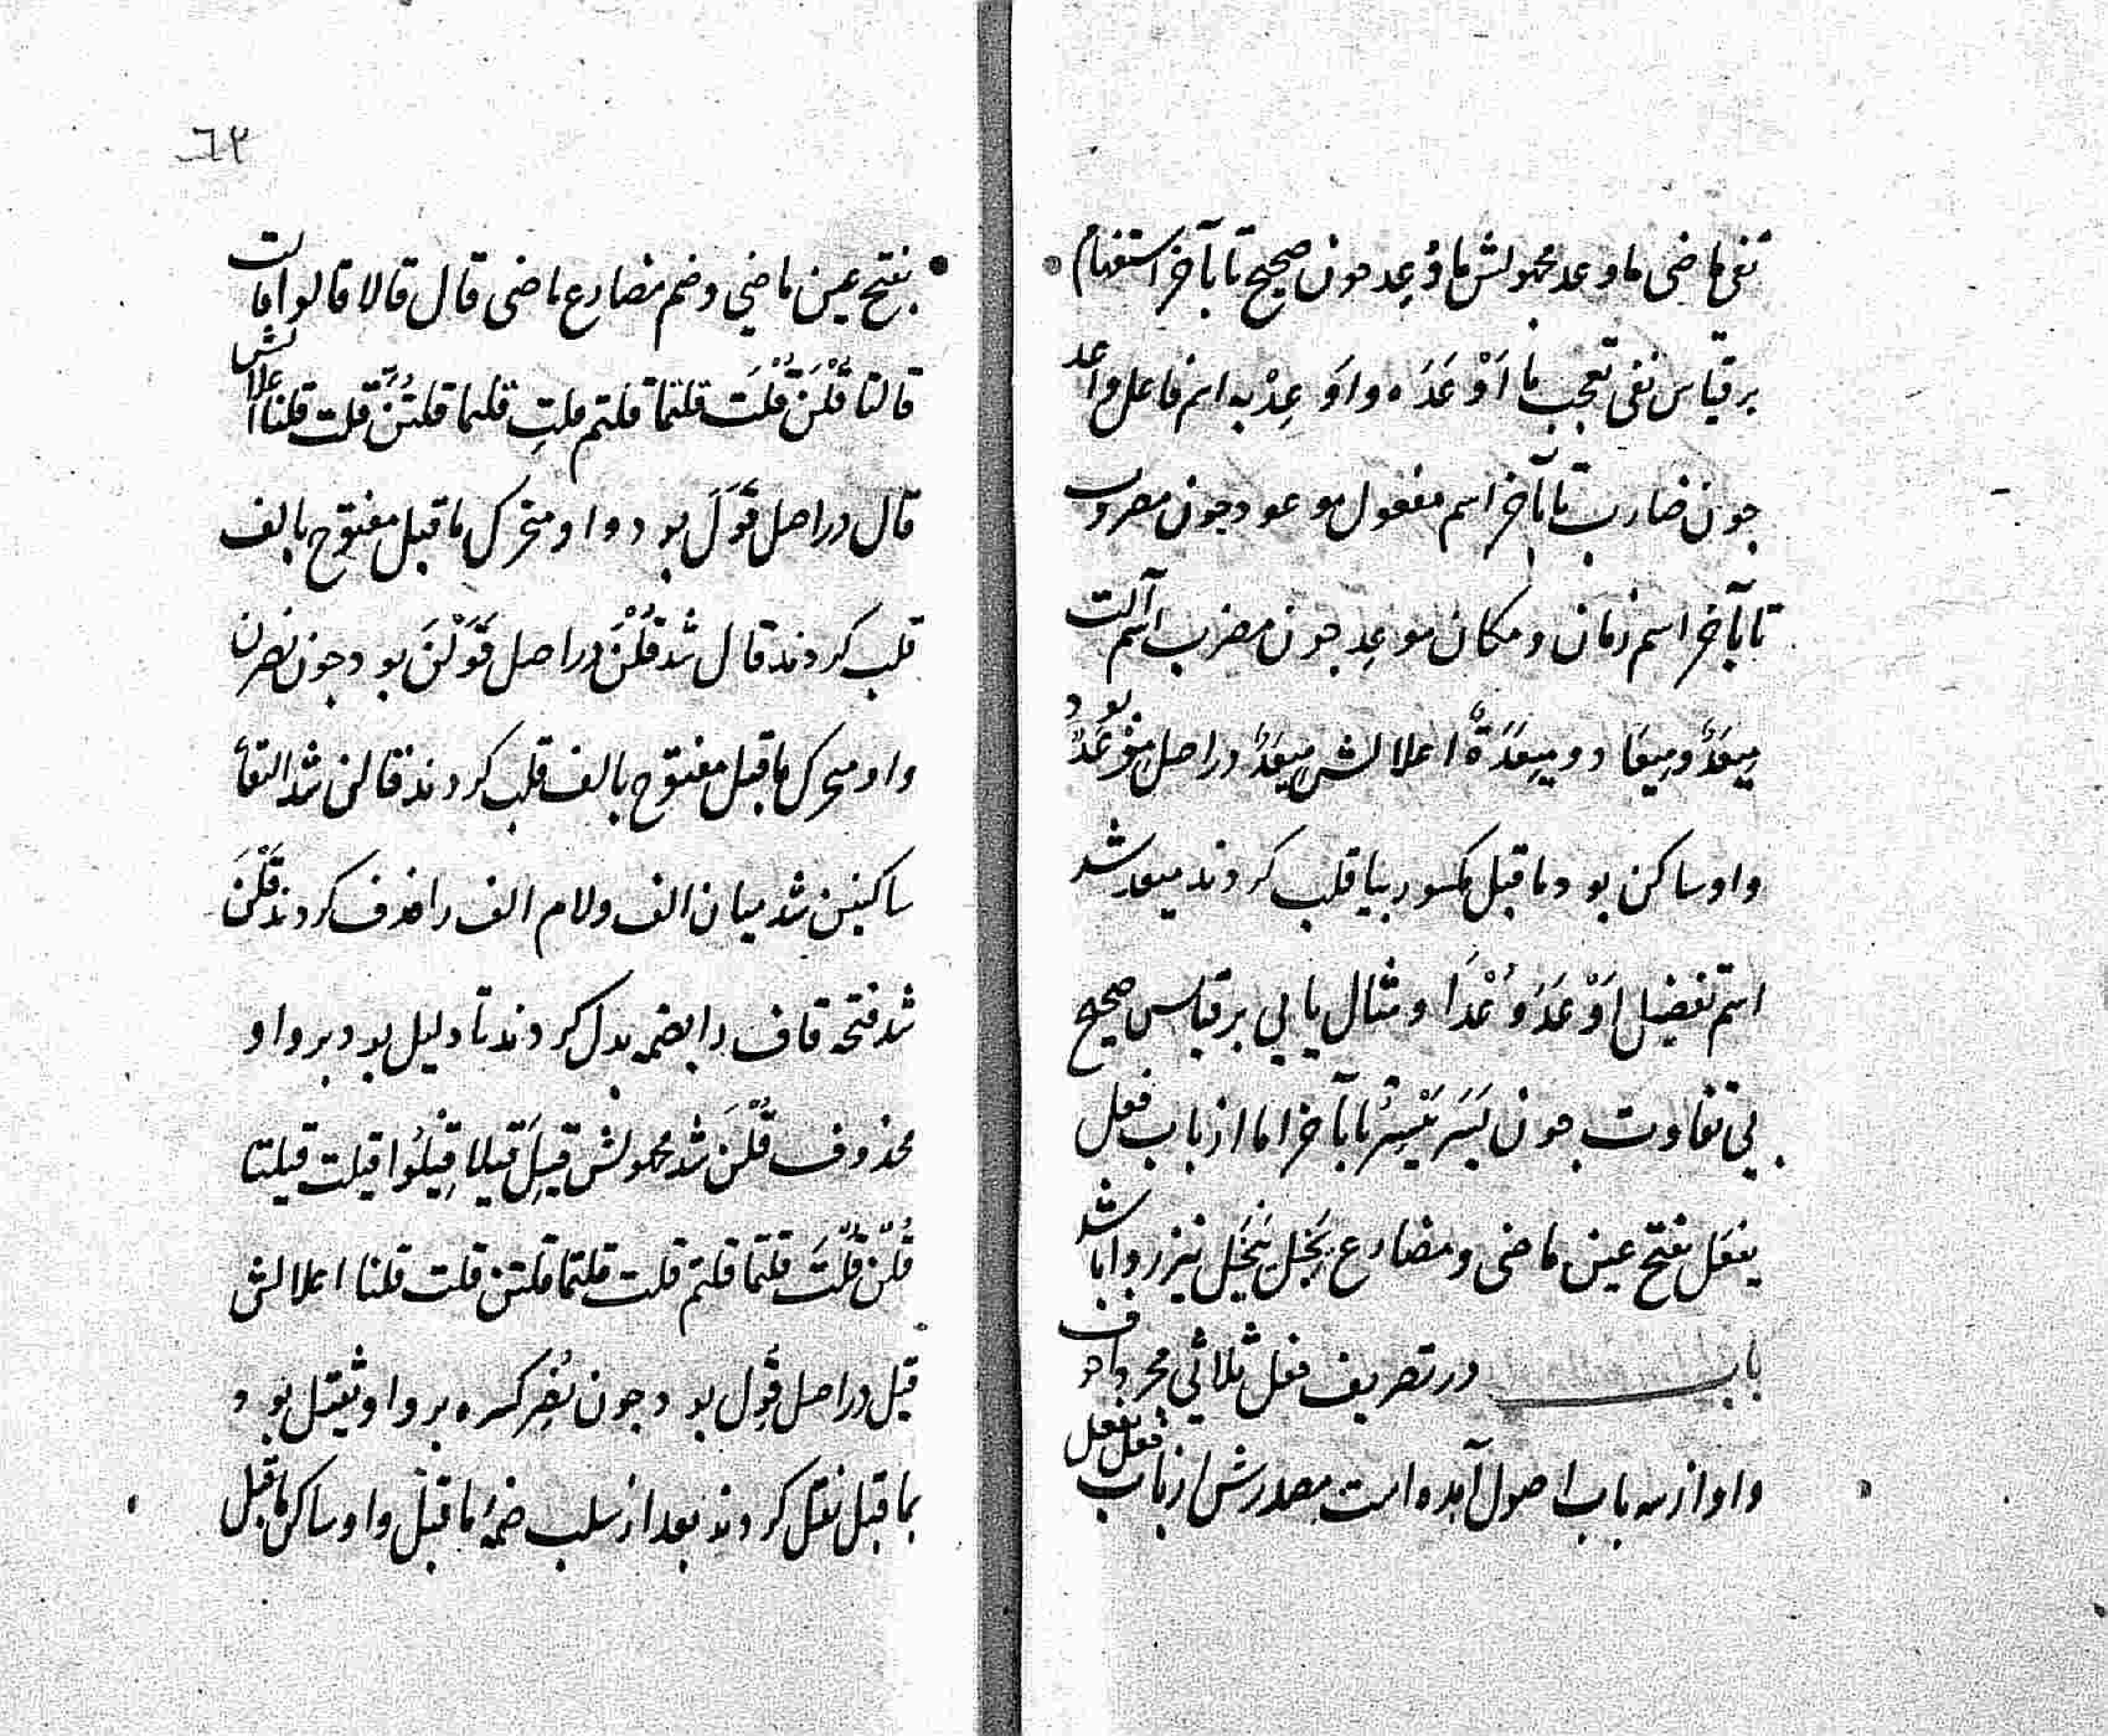 نفی ماضی ماوعد مجهولش ماوُعِد چون صحیح تا بآخر استفهام
برقیاس نفی تعجب ما اَوْعَدَه واَوعِدْ به اسم فاعل واعد
چون ضارب تا بآخر اسم مفعول موعود چون مضروب
تا بآخر اسم زمان و مکان موعِد چون مضرب اسم آلت
مِیعَدٌ ومِیعَاد ومِیعَدَةٌ اعلالش مِیعَدٌ دراصل مِوْعَدٌ بود
واو ساکن بود ماقبل مکسور بیا قلب کردند میعد شد
اسم تفضیل اَوْعَدَ وُعْدَا ومثال یایی برقیاس صحیح
بی تفاوت چون یَسَرَ یَیْسِرُ تا بآخر اما از باب فعل
یفعل بفتح عین ماضی ومضارع نیز روا باشد
باب در تصریف فعل ثلاثی مجرد اجوف
واو از سه باب اصول آمده است مصدرش از باب فعل یفعل
٦٢
بفتح عین ماضی وضم مضارع ماضی قال قالا قالوا قالت
قالتا قُلْنَ قُلْتَ قلتما قلتم قلتِ قلتما قلتُنَّ قلت قلنا اعلالش
قال دراصل قَوَلَ بود واو متحرک ماقبل مفتوح بالف
قلب کردند قال شد قُلْنَ دراصل قَوَلْنَ بود چون نصرن
واو متحرک ماقبل مفتوح بالف قلب کردند قالن شد التقأ
ساکنین شد میان الف ولام الف را حذف کردند قَلْنَ
شد فتحه قاف را بضمه بدل کردند تا دلیل بود بر واو
محذوف قُلْنَ شد مجهولش قِیلَ قیلا قِیلُوا قیلت قیلتا
قُلْنَ قُلْتَ قلتما قلتم قلت قلتما قلتن قلت قلنا اعلالش
قیل دراصل قُوِل بود چون نُصِر کسره بر واو ثقیل بود
بما قبل نقل کردند بعد از سلب ضمهٔ ماقبل واو ساکن ماقبل